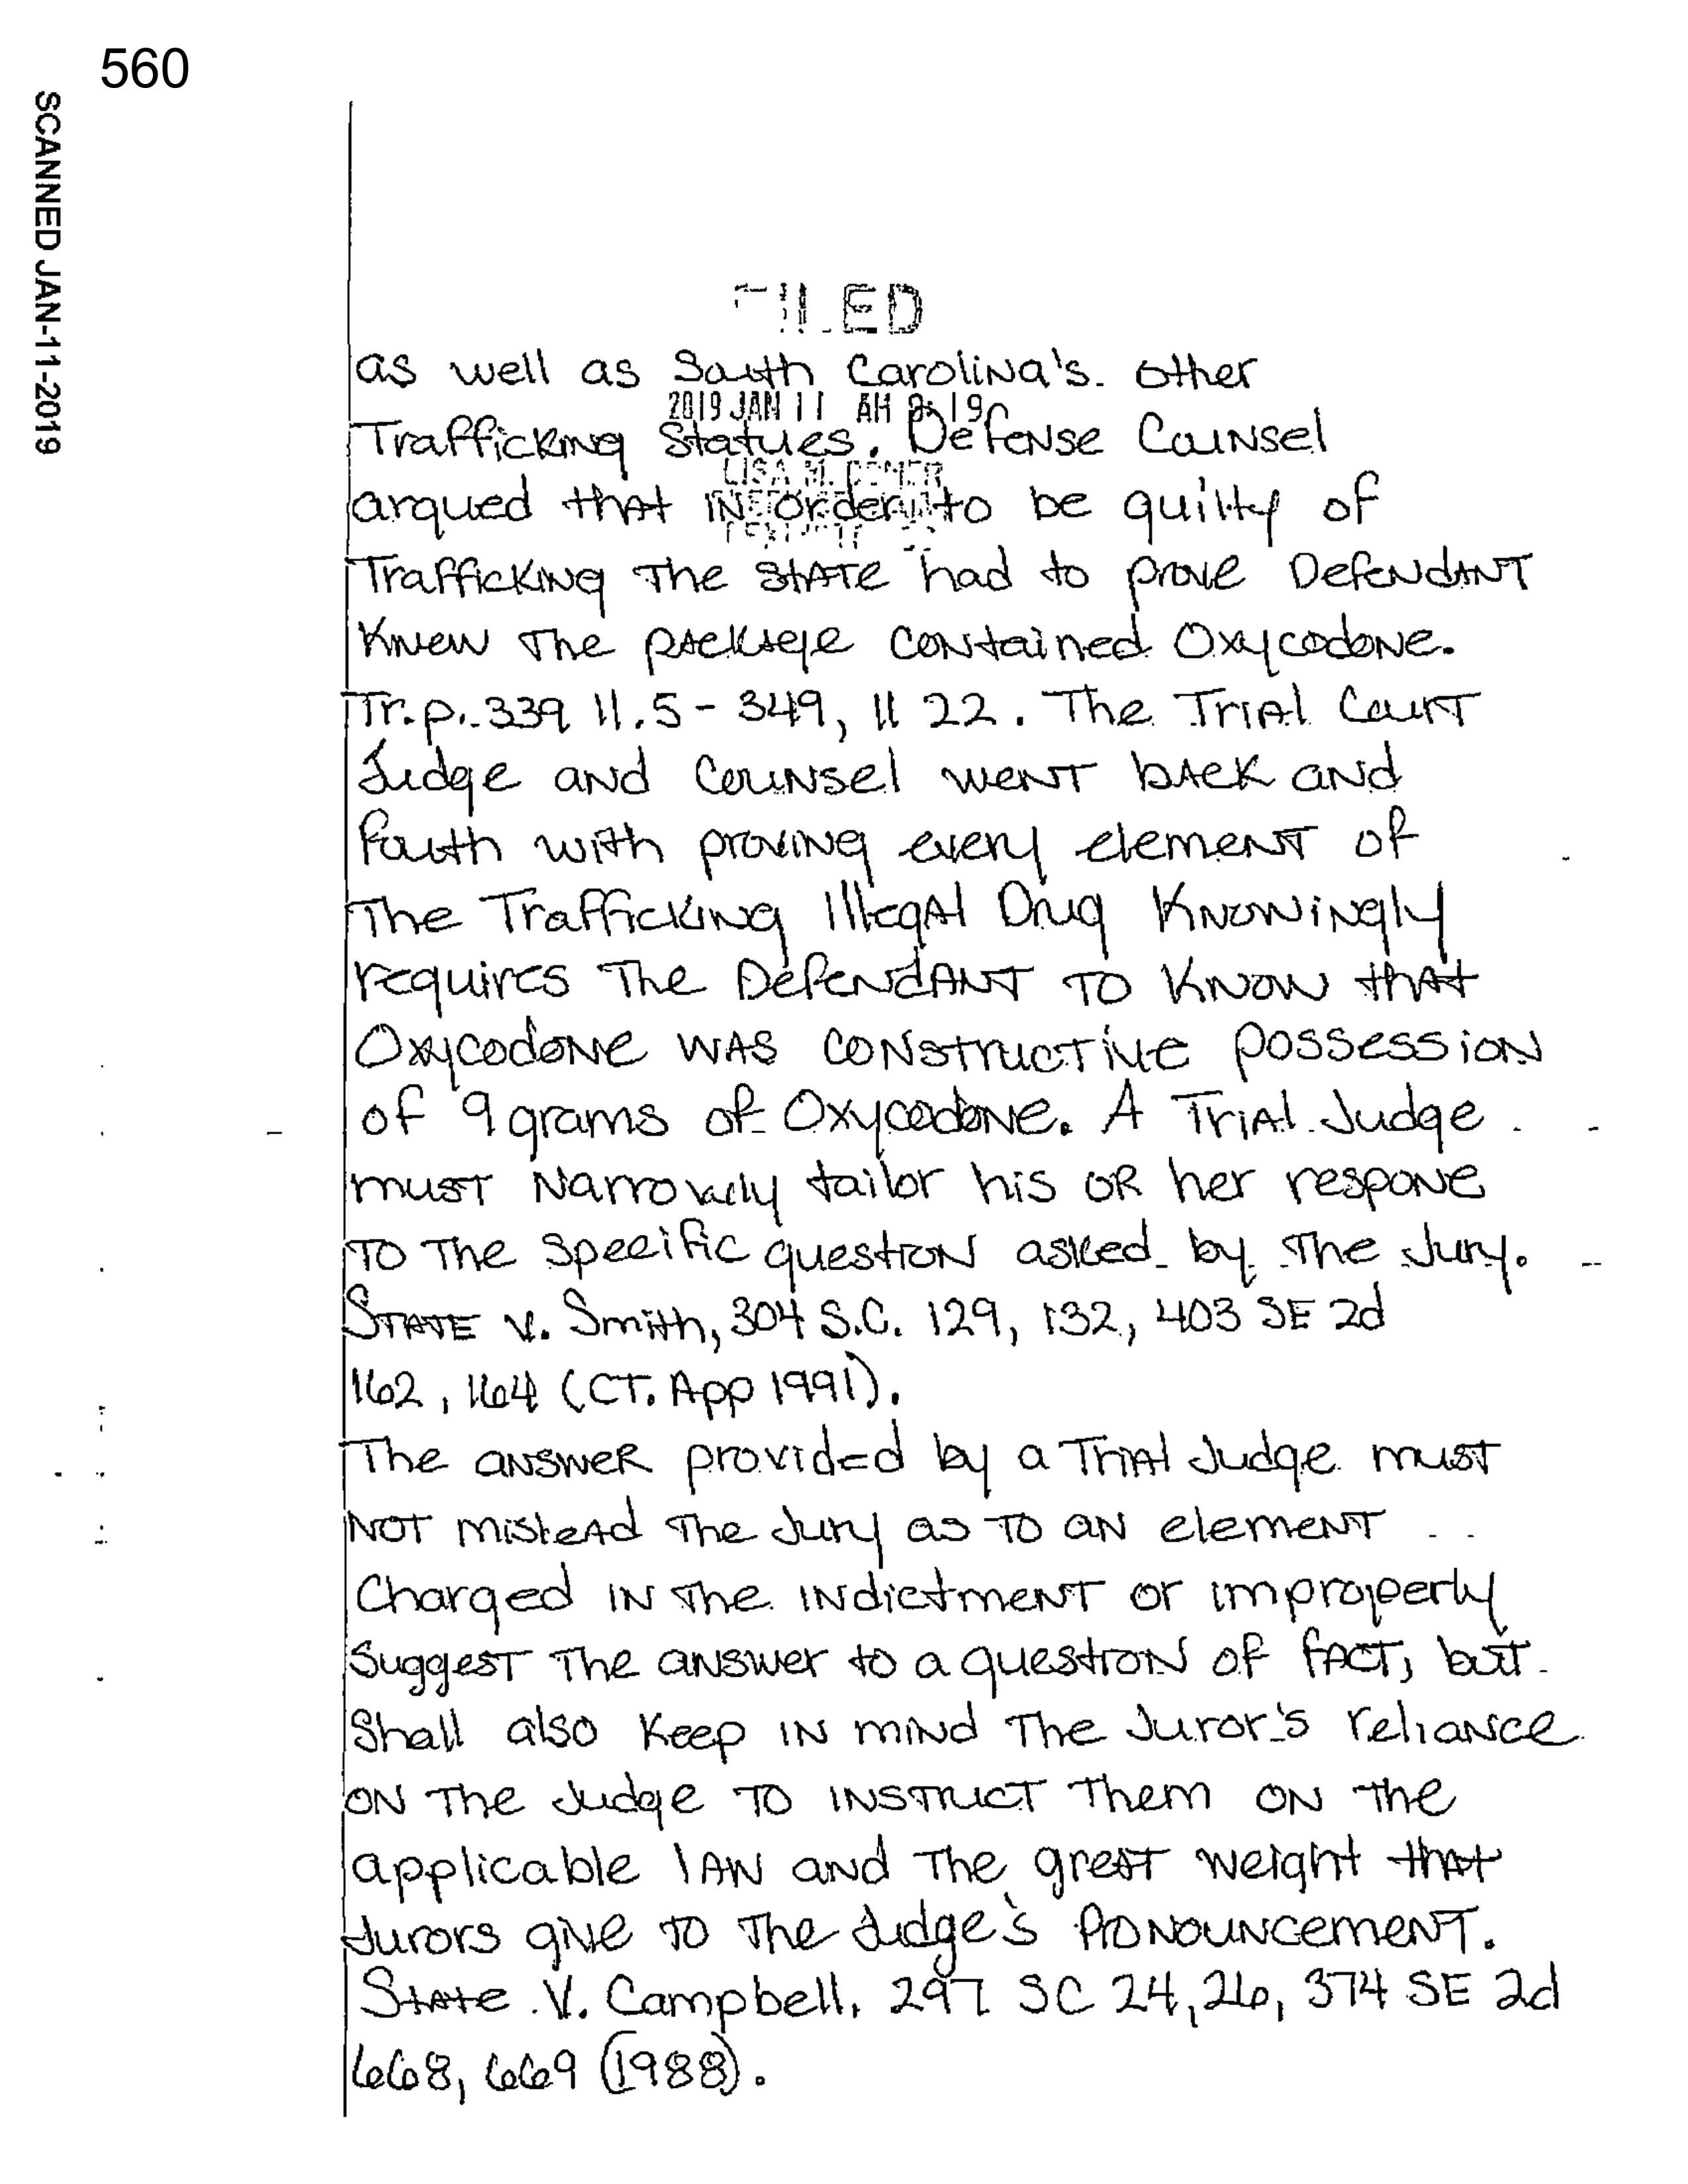 560
SCANNED JAN-11-2019
FILED
as well as South Carolina's other
2019 JAN 11 AM
Trafficking Statues. Defense Counsel
LISA M. COMER
argued that in order to be guilty of
Trafficking The State had to prove Defendant
Knew The package contained Oxycodone.
Tr.p. 339 ll.5 - 349, ll 22. The Trial Court
Judge and Counsel went back and
fouth with proving every element of
The Trafficking Illegal Drug Knowingly
requires The Defendant to Know that
Oxycodone was constructive possession
of 9 grams of Oxycodone. A Trial Judge
must Narrowly tailor his or her respone
to The specific question asked by The Jury.
State v. Smith, 304 S.C. 129, 132, 403 SE 2d
162, 164 (CT. App 1991).
The answer provided by a Trial Judge must
Not mislead The Jury as to an element
Charged in The indictment or improperly
Suggest The answer to a question of fact, but
Shall also Keep in mind The Juror's reliance
on The Judge to instruct Them on the
applicable law and The great weight that
Jurors give to The Judge's Pronouncement.
State V. Campbell, 297 SC 24, 26, 374 SE 2d
668, 669 (1988).